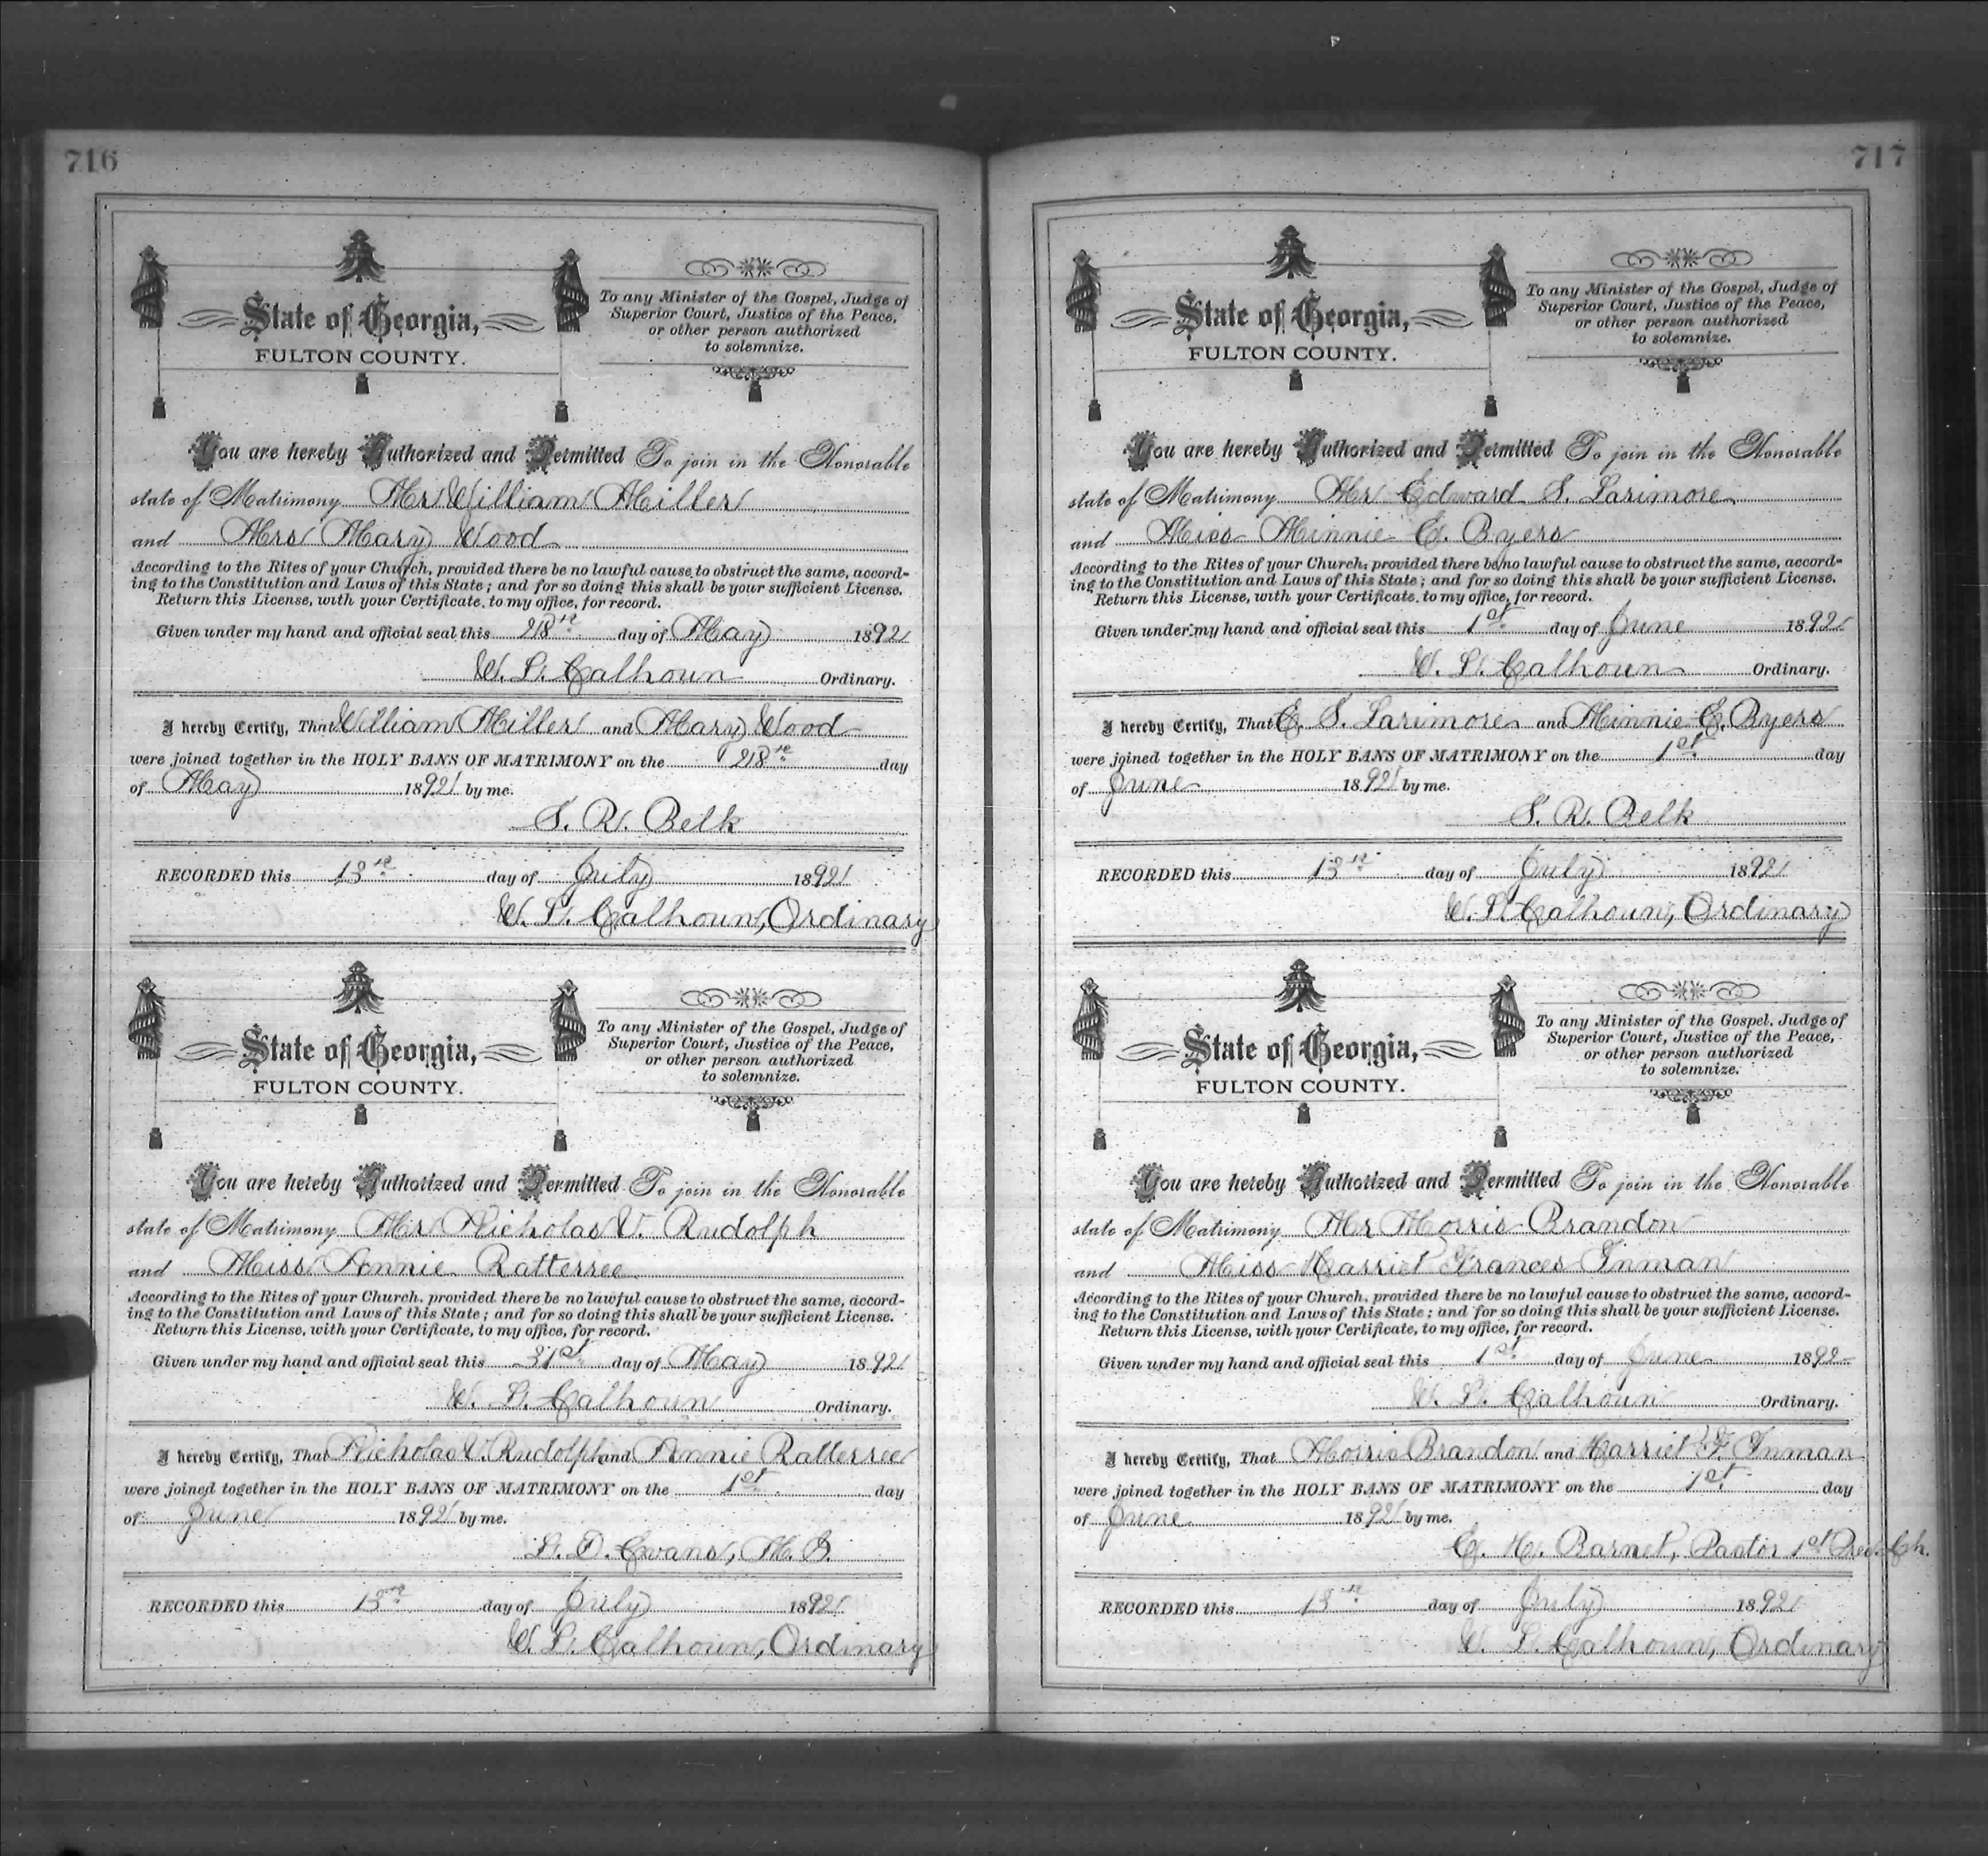 716
State of Georgia,
FULTON COUNTY.
To any Minister of the Gospel, Judge of
Superior Court, Justice of the Peace,
or other person authorized
to solemnize.
You are hereby Authorized and Permitted To join in the Honorable
state of Matrimony Mr William Miller
and Mrs Mary Wood
According to the Rites of your Church, provided there be no lawful cause to obstruct the same, accord-
ing to the Constitution and Laws of this State; and for so doing this shall be your sufficient License.
Return this License, with your Certificate, to my office, for record.
Given under my hand and official seal this 28th day of May 1892
W. L. Calhoun Ordinary.
I hereby Certify, That William Miller and Mary Wood
were joined together in the HOLY BANS OF MATRIMONY on the 28th day
of May 1892 by me.
S. R. Belk
RECORDED this 13th day of July 1892
W. L. Calhoun, Ordinary
State of Georgia,
FULTON COUNTY.
To any Minister of the Gospel, Judge of
Superior Court, Justice of the Peace,
or other person authorized
to solemnize.
You are hereby Authorized and Permitted To join in the Honorable
state of Matrimony Mr Nicholas V. Rudolph
and Miss Annie Ratterree
According to the Rites of your Church, provided there be no lawful cause to obstruct the same, accord-
ing to the Constitution and Laws of this State; and for so doing this shall be your sufficient License.
Return this License, with your Certificate, to my office, for record.
Given under my hand and official seal this 31st day of May 1892
W. L. Calhoun Ordinary.
I hereby Certify, That Nicholas V. Rudolph and Annie Ratterree
were joined together in the HOLY BANS OF MATRIMONY on the 1st day
of June 1892 by me.
L. D. Evans, M. G.
RECORDED this 13th day of July 1892
W. L. Calhoun, Ordinary
717
State of Georgia,
FULTON COUNTY.
To any Minister of the Gospel, Judge of
Superior Court, Justice of the Peace,
or other person authorized
to solemnize.
You are hereby Authorized and Permitted To join in the Honorable
state of Matrimony Mr Edward S. Larimore
and Miss Minnie E. Byers
According to the Rites of your Church, provided there be no lawful cause to obstruct the same, accord-
ing to the Constitution and Laws of this State; and for so doing this shall be your sufficient License.
Return this License, with your Certificate, to my office, for record.
Given under my hand and official seal this 1st day of June 1892
W. L. Calhoun Ordinary.
I hereby Certify, That E. S. Larimore and Minnie E. Byers
were joined together in the HOLY BANS OF MATRIMONY on the 1st day
of June 1892 by me.
S. R. Belk
RECORDED this 13th day of July 1892
W. L. Calhoun, Ordinary
State of Georgia,
FULTON COUNTY.
To any Minister of the Gospel, Judge of
Superior Court, Justice of the Peace,
or other person authorized
to solemnize.
You are hereby Authorized and Permitted To join in the Honorable
state of Matrimony Mr Morris Brandon
and Miss Harriet Frances Inman
According to the Rites of your Church, provided there be no lawful cause to obstruct the same, accord-
ing to the Constitution and Laws of this State; and for so doing this shall be your sufficient License.
Return this License, with your Certificate, to my office, for record.
Given under my hand and official seal this 1st day of June 1892
W. L. Calhoun Ordinary.
I hereby Certify, That Morris Brandon and Harriet F. Inman
were joined together in the HOLY BANS OF MATRIMONY on the 1st day
of June 1892 by me.
E. H. Barnet, Pastor 1st Pres. Ch.
RECORDED this 13th day of July 1892
W. L. Calhoun, Ordinary